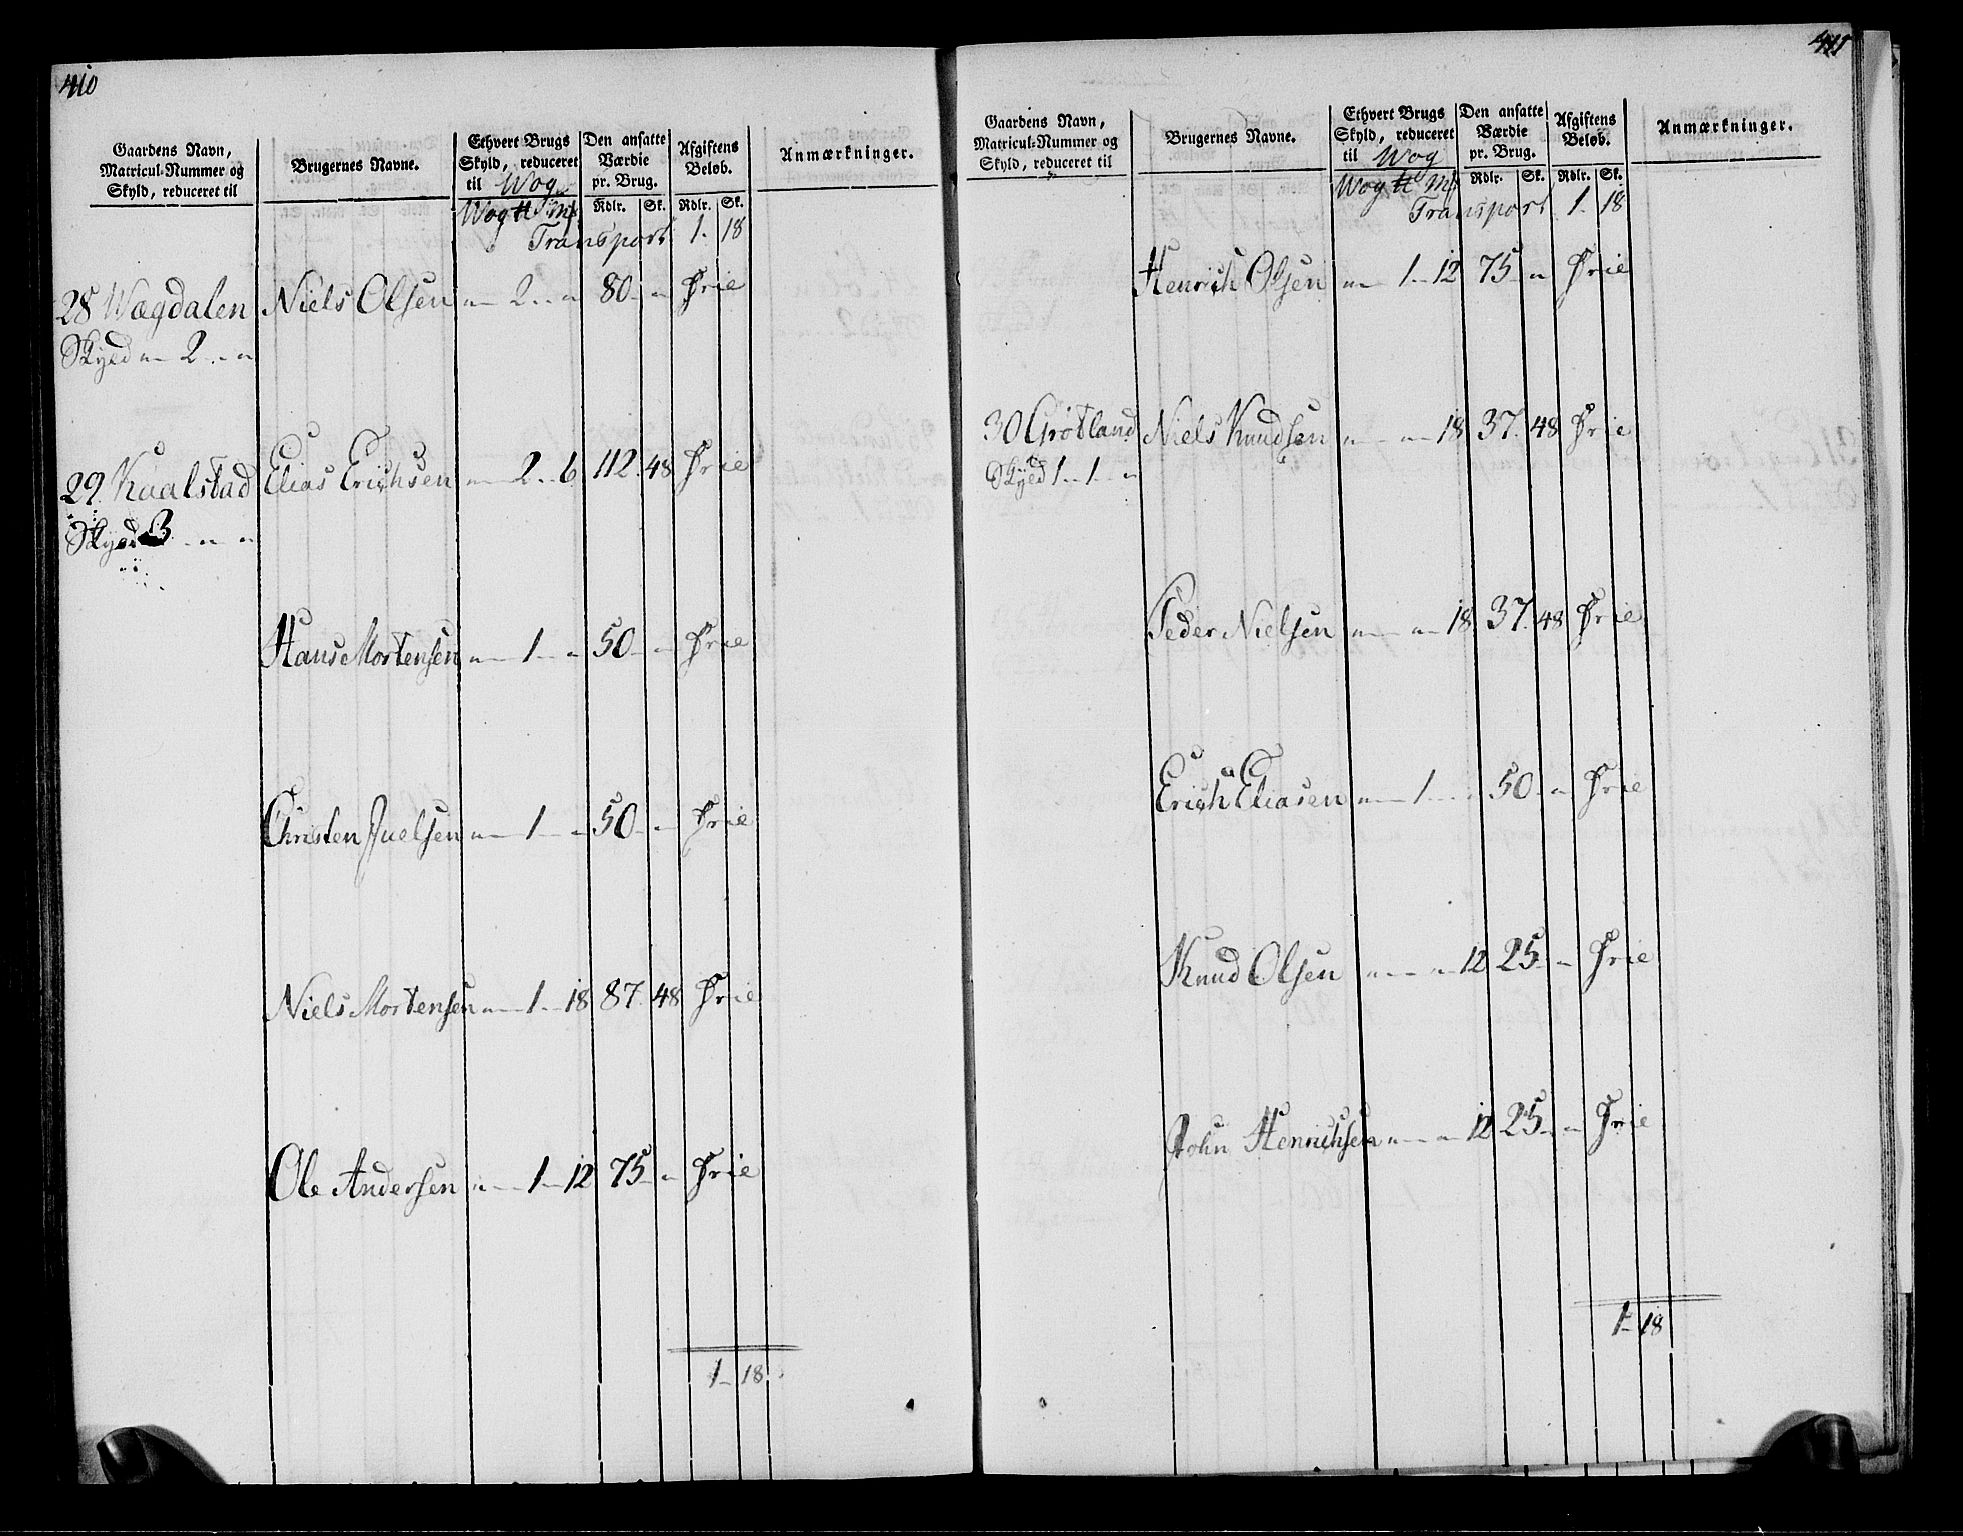 410
Gaardens Navn, Matricul-Nummer og Skyld, reduceret til
Brugernes Navne.
Ethvert Brugs Skyld, reduceret til Wog
Den ansatte Værdie pr. Brug.
Afgiftens Beløb.
Anmærkninger.
Wog ℔ Mk Rdlr. Sk. Rdlr. Sk.
Transport 1 - 18
28 Wægdalen Niels Olsen " - 2 - " 80 - " Frie
Skyld " - 2 - "
29 Kaalstad Elias Erichsen " - 2 - 6 112 - 48 Frie
Skyld 3 - " - "
Hans Mortensen " - 1 - " 50 - " Frie
Christen Juelsen " - 1 - " 50 - " Frie
Niels Mortensen " - 1 - 18 87 - 48 Frie
Ole Andersen " - 1 - 12 75 - " Frie
1 - 18
411
Gaardens Navn, Matricul-Nummer og Skyld, reduceret til
Brugernes Navne.
Ethvert Brugs Skyld, reduceret til Wog
Den ansatte Værdie pr. Brug.
Afgiftens Beløb.
Anmærkninger.
Wog ℔ Mk Rdlr. Sk. Rdlr. Sk.
Transport 1 - 18
Henrich Olsen " - 1 - 12 75 - " Frie
30 Grötland Niels Knudsen " - " - 18 37 - 48 Frie
Skyld 1 - 1 - "
Peder Nielsen " - " - 18 37 - 48 Frie
Erich Eliasen " - 1 - " 50 - " Frie
Knud Olsen " - " - 12 25 - " Frie
John Henrichsen " - " - 12 25 - " Frie
1 - 18